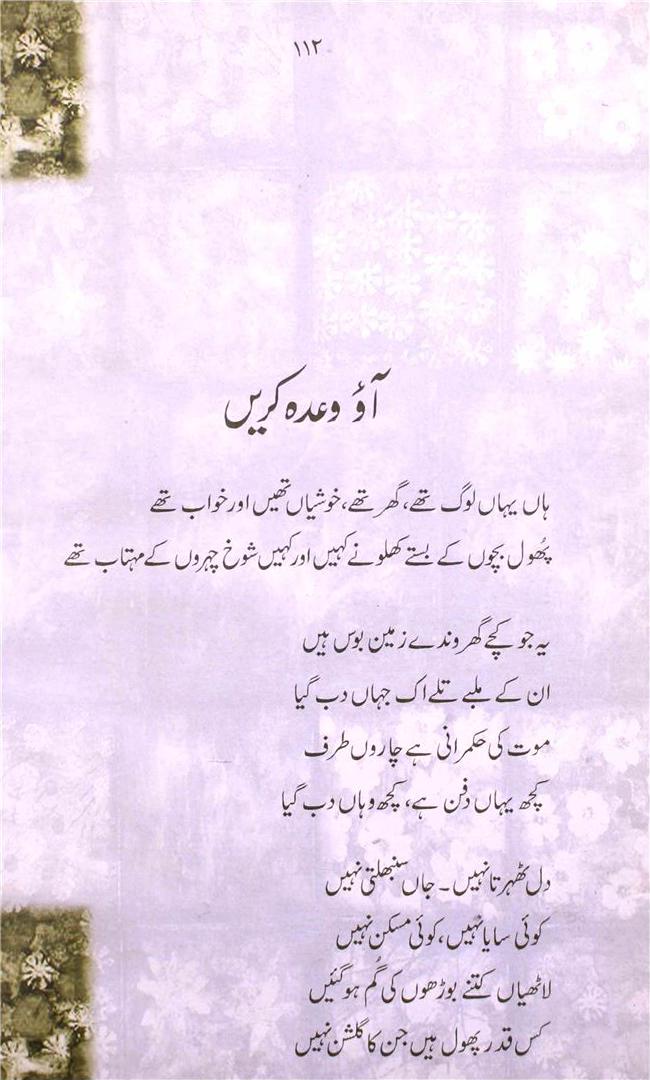 ۱۱۲
آؤ وعدہ کریں
ہاں یہاں لوگ تھے، گھر تھے، خوشیاں تھیں اور خواب تھے
پھُول بچوں کے بستے کھلونے کہیں اور کہیں شوخ چہروں کے مہتاب تھے
یہ جو کچے گھروندے زمین بوس ہیں
ان کے ملبے تلے اک جہاں دب گیا
موت کی حکمرانی ہے چاروں طرف
کچھ یہاں دفن ہے، کچھ وہاں دب گیا
دل ٹھہرتا نہیں۔ جاں سنبھلتی نہیں
کوئی سایا نہیں، کوئی مسکن نہیں
لاٹھیاں کتنے بوڑھوں کی گُم ہو گئیں
کس قدر پھول ہیں جن کا گلشن نہیں